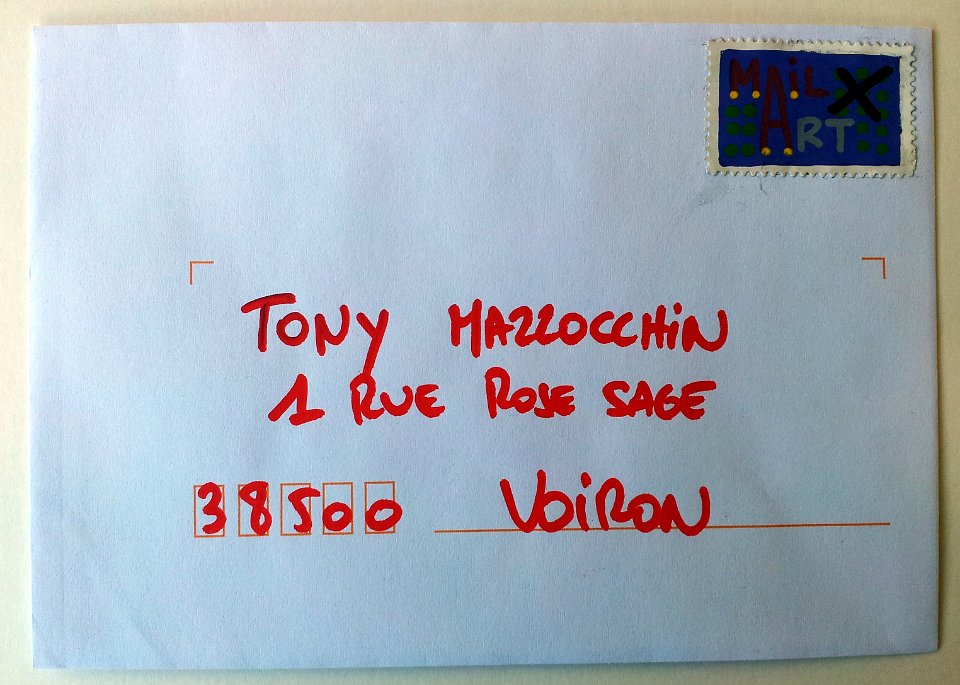 MAIL
ART
TONY MAZZOCCHIN
1 RUE ROSE SAGE
38500 VOIRON